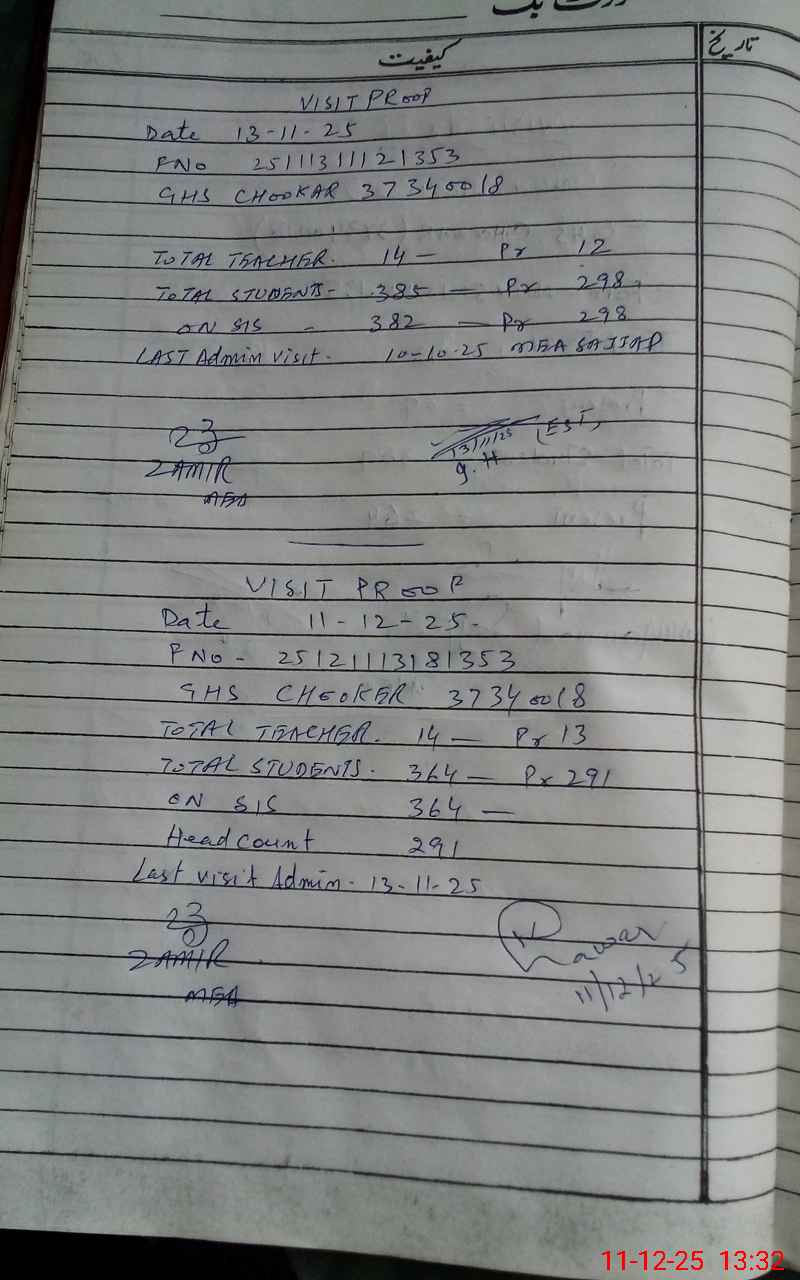 کیفیت
تاریخ
VISIT PROOF
Date 13-11-25
FNO 25111311121353
GHS CHOOKAR 37340018
TOTAL TEACHER. 14 — Pr 12
TOTAL STUDENTS- 385 — Pr 298
ON SIS - 382 — Pr 298
LAST Admin visit. 10-10-25 MEA SAJJAD
13/11/25 (EST)
ZAMIR
MEA
VISIT PROOF
Date 11-12-25-
FNO- 25121113181353
GHS CHOOKER 37340018
TOTAL TEACHER. 14 — Pr 13
TOTAL STUDENTS. 364 — Pr 291
ON SIS 364 —
Head count 291
Last visit Admin- 13-11-25
ZAMIR
MEA
11/12/25
11-12-25 13:32